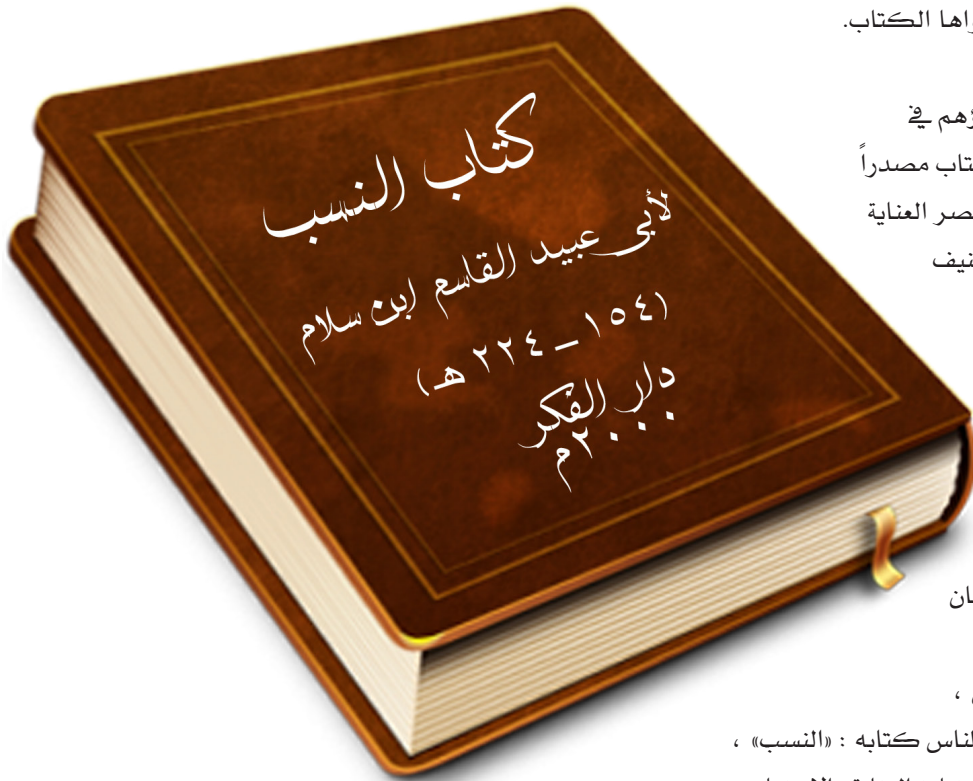 الكتاب.
في
مصدراً
العناية
كتاب النسب
لأبي عبيد القاسم ابن سلام
(١٥٤ – ٢٢٤ هـ)
دار الفكر
٢٠٠٠م
،
كتابه : «النسب» ،